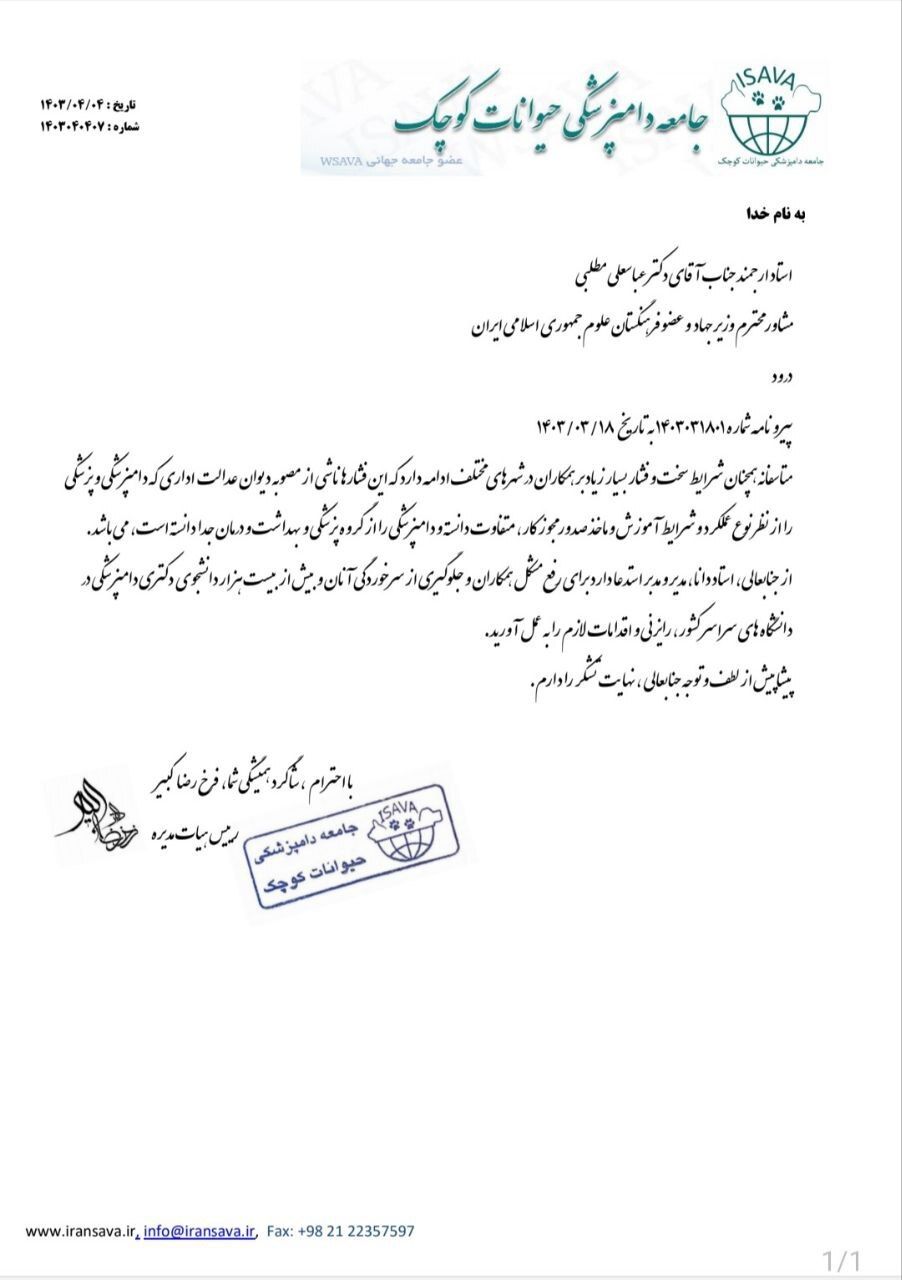 تاریخ : ۱۴۰۳/۰۴/۰۴
شماره : ۱۴۰۳۰۴۰۴۰۷
جامعه دامپزشکی حیوانات کوچک
عضو جامعه جهانی WSAVA
ISAVA
جامعه دامپزشکی حیوانات کوچک
به نام خدا
استاد ارجمند جناب آقای دکتر عباسعلی مطلبی
مشاور محترم وزیر جهاد و عضو فرهنگستان علوم جمهوری اسلامی ایران
درود
پیرو نامه شماره ۱۴۰۳۰۳۱۸۰۱ به تاریخ ۱۴۰۳/۰۳/۱۸
متاسفانه همچنان شرایط سخت و فشار بسیار زیاد بر همکاران در شهرهای مختلف ادامه دارد که این فشارها ناشی از مصوبه دیوان عدالت اداری که دامپزشکی و پزشکی
را از نظر نوع عملکرد و شرایط آموزش و ماخذ صدور مجوز کار، متفاوت دانسته و دامپزشکی را از گروه پزشکی و بهداشت و درمان جدا دانسته است، می باشد.
از جنابعالی، استاد دانا، مدیر و مدبر استدعا دارد برای رفع مشکل همکاران و جلوگیری از سرخوردگی آنان و بیش از بیست هزار دانشجوی دکتری دامپزشکی در
دانشگاه های سراسر کشور، رایزنی و اقدامات لازم را به عمل آورید.
پیشاپیش از لطف و توجه جنابعالی، نهایت تشکر را دارم.
با احترام، شاگرد همیشگی شما، فرخ رضا کبیر
رییس هیات مدیره
ISAVA
جامعه دامپزشکی
حیوانات کوچک
www.iransava.ir, info@iransava.ir, Fax: +98 21 22357597
1/1